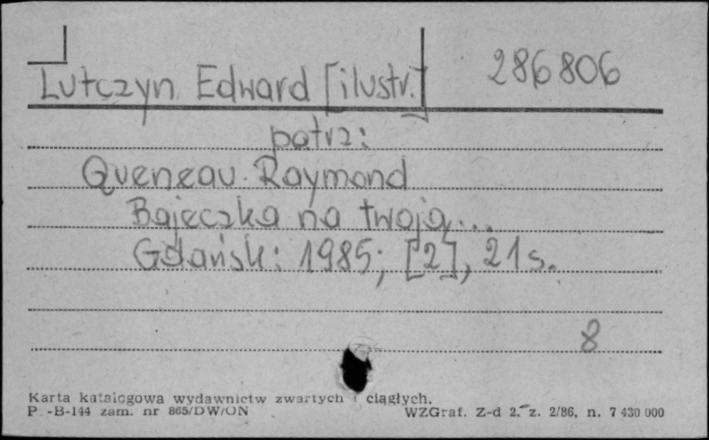 Lutczyn Edward [ilustr.]
286806
patrz:
Queneau Raymond
Bajeczka na twoją...
Gdańsk: 1985; [2], 21 s.
8
Karta katalogowa wydawnictw zwartych i ciągłych.
P -B-144 zam. nr 865/DW/ON
WZGraf. Z-d 2. z. 2/86, n. 7 430 000